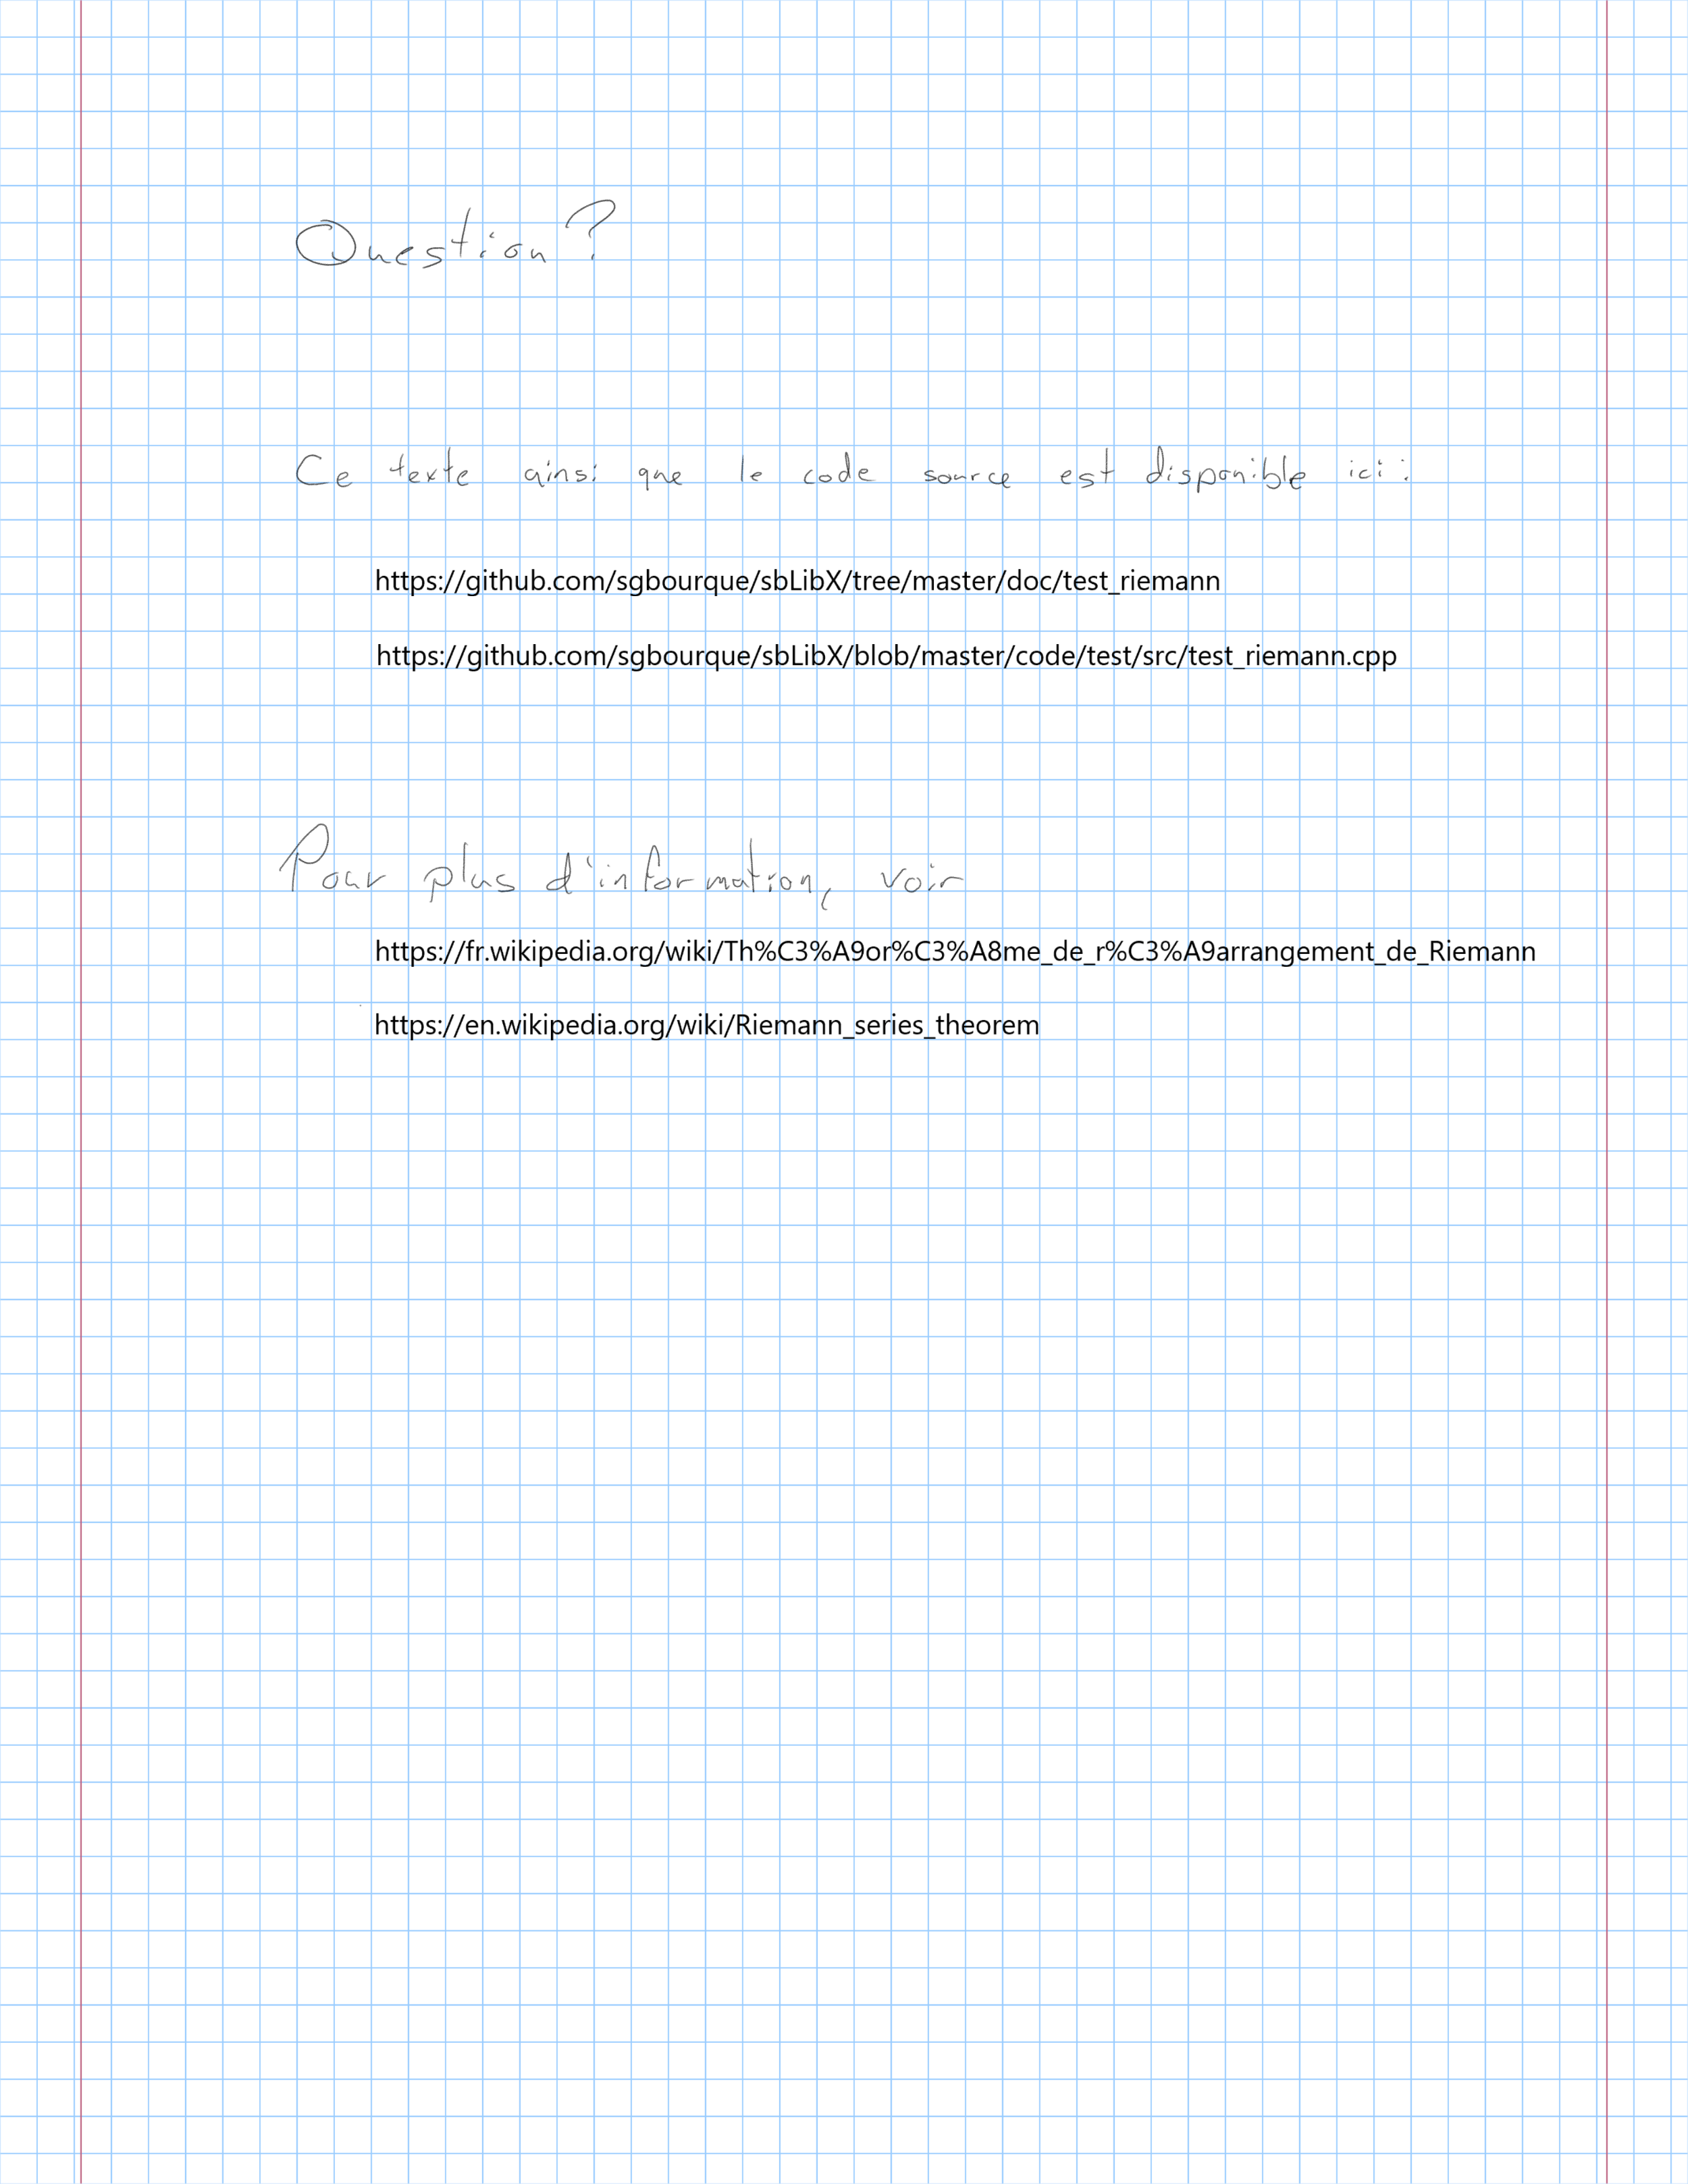 Question?
Ce texte ainsi que le code source est disponible ici :
https://github.com/sgbourque/sbLibX/tree/master/doc/test_riemann
https://github.com/sgbourque/sbLibX/blob/master/code/test/src/test_riemann.cpp
Pour plus d'information, voir
https://fr.wikipedia.org/wiki/Th%C3%A9or%C3%A8me_de_r%C3%A9arrangement_de_Riemann
https://en.wikipedia.org/wiki/Riemann_series_theorem